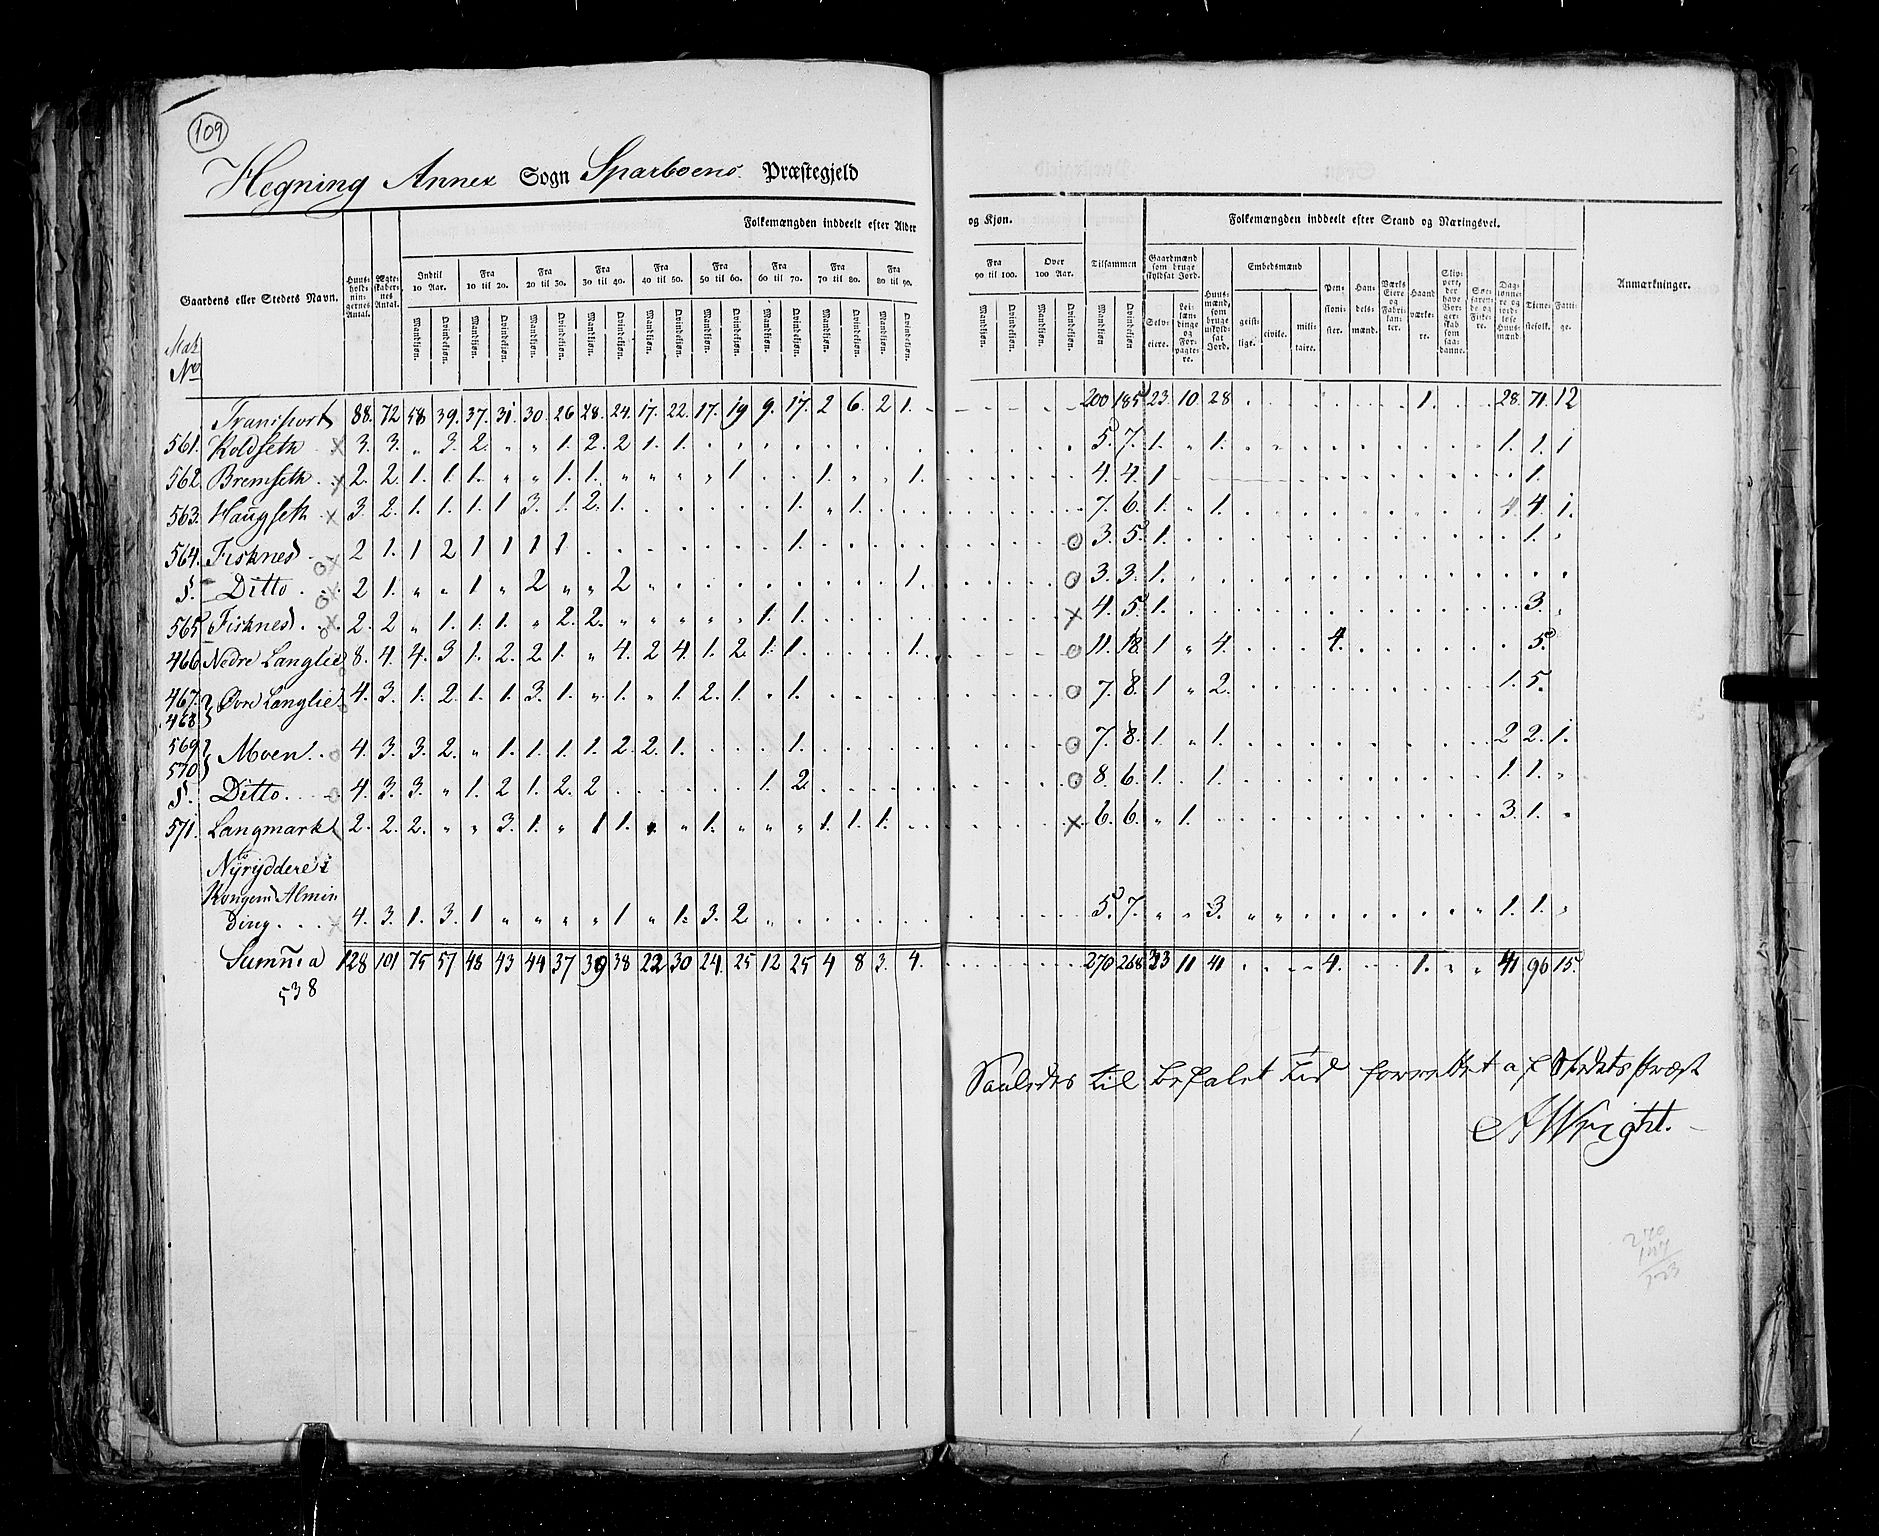 109
Hegning Annex Sogn Sparboens Præstegjeld
Folkemængden inddeelt efter Alder og Kjøn. Folkemængden inddeelt efter Stand og Næringsvei.
Gaardens eller Stedets Navn. Huusholdningernes Antal. Indtil 10 Aar. Fra 10 til 20. Fra 20 til 30. Fra 30 til 40. Fra 40 til 50. Fra 50 til 60. Fra 60 til 70. Fra 70 til 80. Fra 80 til 90. Fra 90 til 100. Over 100 Aar. Tilsammen Gaardmænd som bruge skyldsat Jord. Embedsmænd Anmærkninger.
Mandkjøn. Qvindekjøn. Mandkjøn. Qvindekjøn. Mandkjøn. Qvindekjøn. Mandkjøn. Qvindekjøn. Mandkjøn. Qvindekjøn. Mandkjøn. Qvindekjøn. Mandkjøn. Qvindekjøn. Mandkjøn. Qvindekjøn. Mandkjøn. Qvindekjøn. Mandkjøn. Qvindekjøn. Mandkjøn. Qvindekjøn. Mandkjøn Qvindekjøn. Selveiere. Leilændinge og Forpagtere. Huusmænd, som bruge uskyldsat Jord. geistlige. civile. militaire. Pensionister. Handelsmænd. Værks Eiere og Fabrikanter. Haandværkere. Tienestefolk. Fattige.
Mat No
Transport 88. 72 58 39. 37. 31. 30. 26 28. 24. 17. 22. 17. 19 9. 17. 2 6. 2 1. 200 185 23. 10 28 1. 28. 71. 12
561. Koldseth x 3. 3. " 3. 2. " " 1. 2. 2 1. 1. 5. 7. 1. " 1. 1. 1. 1
562. Bremseth x 2. 2. 1. 1. 1. " " 1. 1. " " " " 1 1. 1. 4. 4. 1 1.
563. Haugseth x 3. 2. 1. 1. 1. 1 3. 1. 2. 1. 1. " 1. 7. 6. 1. " 1. 4. 4. 1.
564. Fisknes ox 2 1. 1 2 1 1 1 1 1. o 3. 5. 1. 1.
§. Ditto ox 2 1. " " 1 " 2 " " 2 1. o 3. 3. 1.
565 Fisknes ox 2. 2 " 1. 1. 1. " 2. 2. " " " " " 1. 1. x 4. 5. 1. 3.
466 Nedre Langlie o 8. 4. 4. 3 1. 2. 2. 1. " 4. 2 4. 1. 2. 1. 1. 1. o 11. 18. 1 " 4. 4. 5.
467. 468 } Øvre Langlie o 4. 3. 1. 2. 1. 1. 3. 1. " 1. " 1. 2. 1. " 1. o 7. 8. 1 " 2. 1. 5.
569 570 } Moen o 4. 3. 3. 2. " 1. 1. 1. 1. 2. 2. 1. 1. o 7. 8. 1. " 1. 2 2. 1.
§. Ditto o 4. 3. 3. " 1. 2 1. 2. 2 1. 2. o 8 6. 1. 1. 1. 1.
571. Langmark 2. 2. 2. " " 3. 1. " 1 1. " 1. " " " 1. 1. 1. x 6. 6. " 1. 3. 1.
Nÿrÿddere i
Kongens Almin
ding x 4. 3. 1. 3. 1 " " " " 1 " 1. 3. 2 5. 7. " " 3. " " 1. 1.
Summa 128 101 75 57 48 43 44 37 39 38 22 30 24. 25 12 25 4 8 3. 4. 270 268 33 11 41 4. 1. 41 96 15.
538
Saaledes til befalet tid forrettet af Stedets Præst
A Wright.